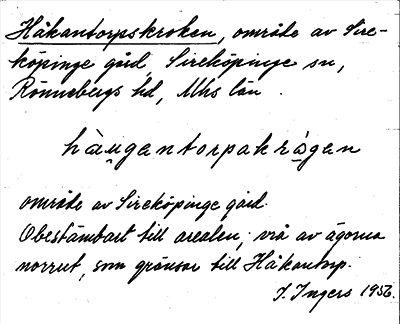 Håkantorpskroken, område av Sire-
köpinge gård, Sireköpinge sn,
Rönnebergs hd, Mhs län.
hàu̯gantorpakrågen
område av Sireköpinge gård.
Obestämbart till arealen; vrå av ägorna
norrut, som gränsar till Håkantorp.
I. Ingers 1956.